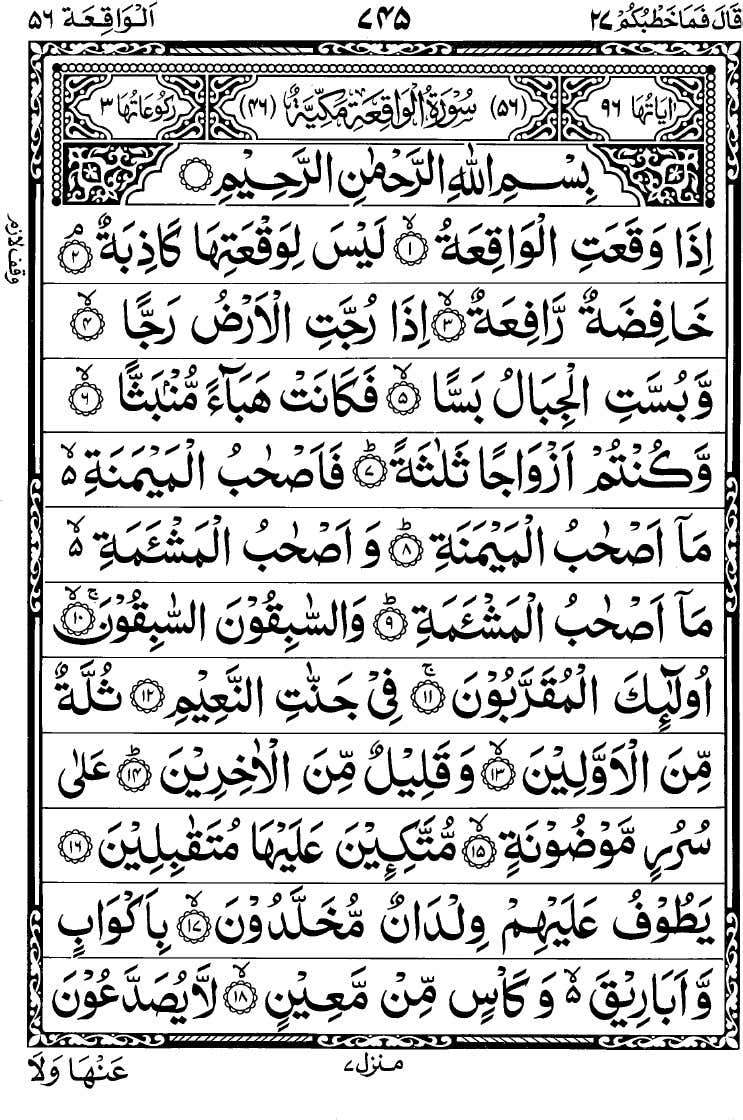 قَالَ فَمَا خَطْبُكُمْ ٢٧ ٧٤٥ اَلْوَاقِعَة ٥٦
اٰیَاتُهَا ٩٦ (٥٦) سُوْرَةُ الْوَاقِعَةِ مَكِّيَّةٌ (٤٦) رُكُوْعَاتُهَا ٣
بِسْمِ اللّٰهِ الرَّحْمٰنِ الرَّحِيْمِ
اِذَا وَقَعَتِ الْوَاقِعَةُ ۙ‏﴿١﴾ لَيْسَ لِوَقْعَتِهَا كَاذِبَةٌ ۘ‏﴿٢﴾
وقف لازم
خَافِضَةٌ رَّافِعَةٌ ۙ‏﴿٣﴾ اِذَا رُجَّتِ الْاَرْضُ رَجًّا ۙ‏﴿٤﴾
وَّبُسَّتِ الْجِبَالُ بَسًّا ۙ‏﴿٥﴾ فَكَانَتْ هَبَآءً مُّنْۢبَثًّا ۙ‏﴿٦﴾
وَّكُنْتُمْ اَزْوَاجًا ثَلٰثَةً ؕ‏﴿٧﴾ فَاَصْحٰبُ الْمَيْمَنَةِ ۙ۵
مَاۤ اَصْحٰبُ الْمَيْمَنَةِ ؕ‏﴿٨﴾ وَ اَصْحٰبُ الْمَشْـَٔمَةِ ۙ۵
مَاۤ اَصْحٰبُ الْمَشْـَٔمَةِ ؕ‏﴿٩﴾ وَالسّٰبِقُوْنَ السّٰبِقُوْنَ ۚۙ‏﴿١٠﴾
اُولٰٓئِكَ الْمُقَرَّبُوْنَ ۚ‏﴿١١﴾ فِيْ جَنّٰتِ النَّعِيْمِ ﴿١٢﴾ ثُلَّةٌ
مِّنَ الْاَوَّلِيْنَ ۙ‏﴿١٣﴾ وَقَلِيْلٌ مِّنَ الْاٰخِرِيْنَ ؕ‏﴿١٤﴾ عَلٰى
سُرُرٍ مَّوْضُوْنَةٍ ۙ‏﴿١٥﴾ مُّتَّكِـِٕيْنَ عَلَيْهَا مُتَقٰبِلِيْنَ ﴿١٦﴾
يَطُوْفُ عَلَيْهِمْ وِلْدَانٌ مُّخَلَّدُوْنَ ۙ‏﴿١٧﴾ بِاَكْوَابٍ
وَّاَبَارِيْقَ ۙ۵ وَكَاْسٍ مِّنْ مَّعِيْنٍ ۙ‏﴿١٨﴾ لَّا يُصَدَّعُوْنَ
منزل٧
عَنْهَا وَلَا